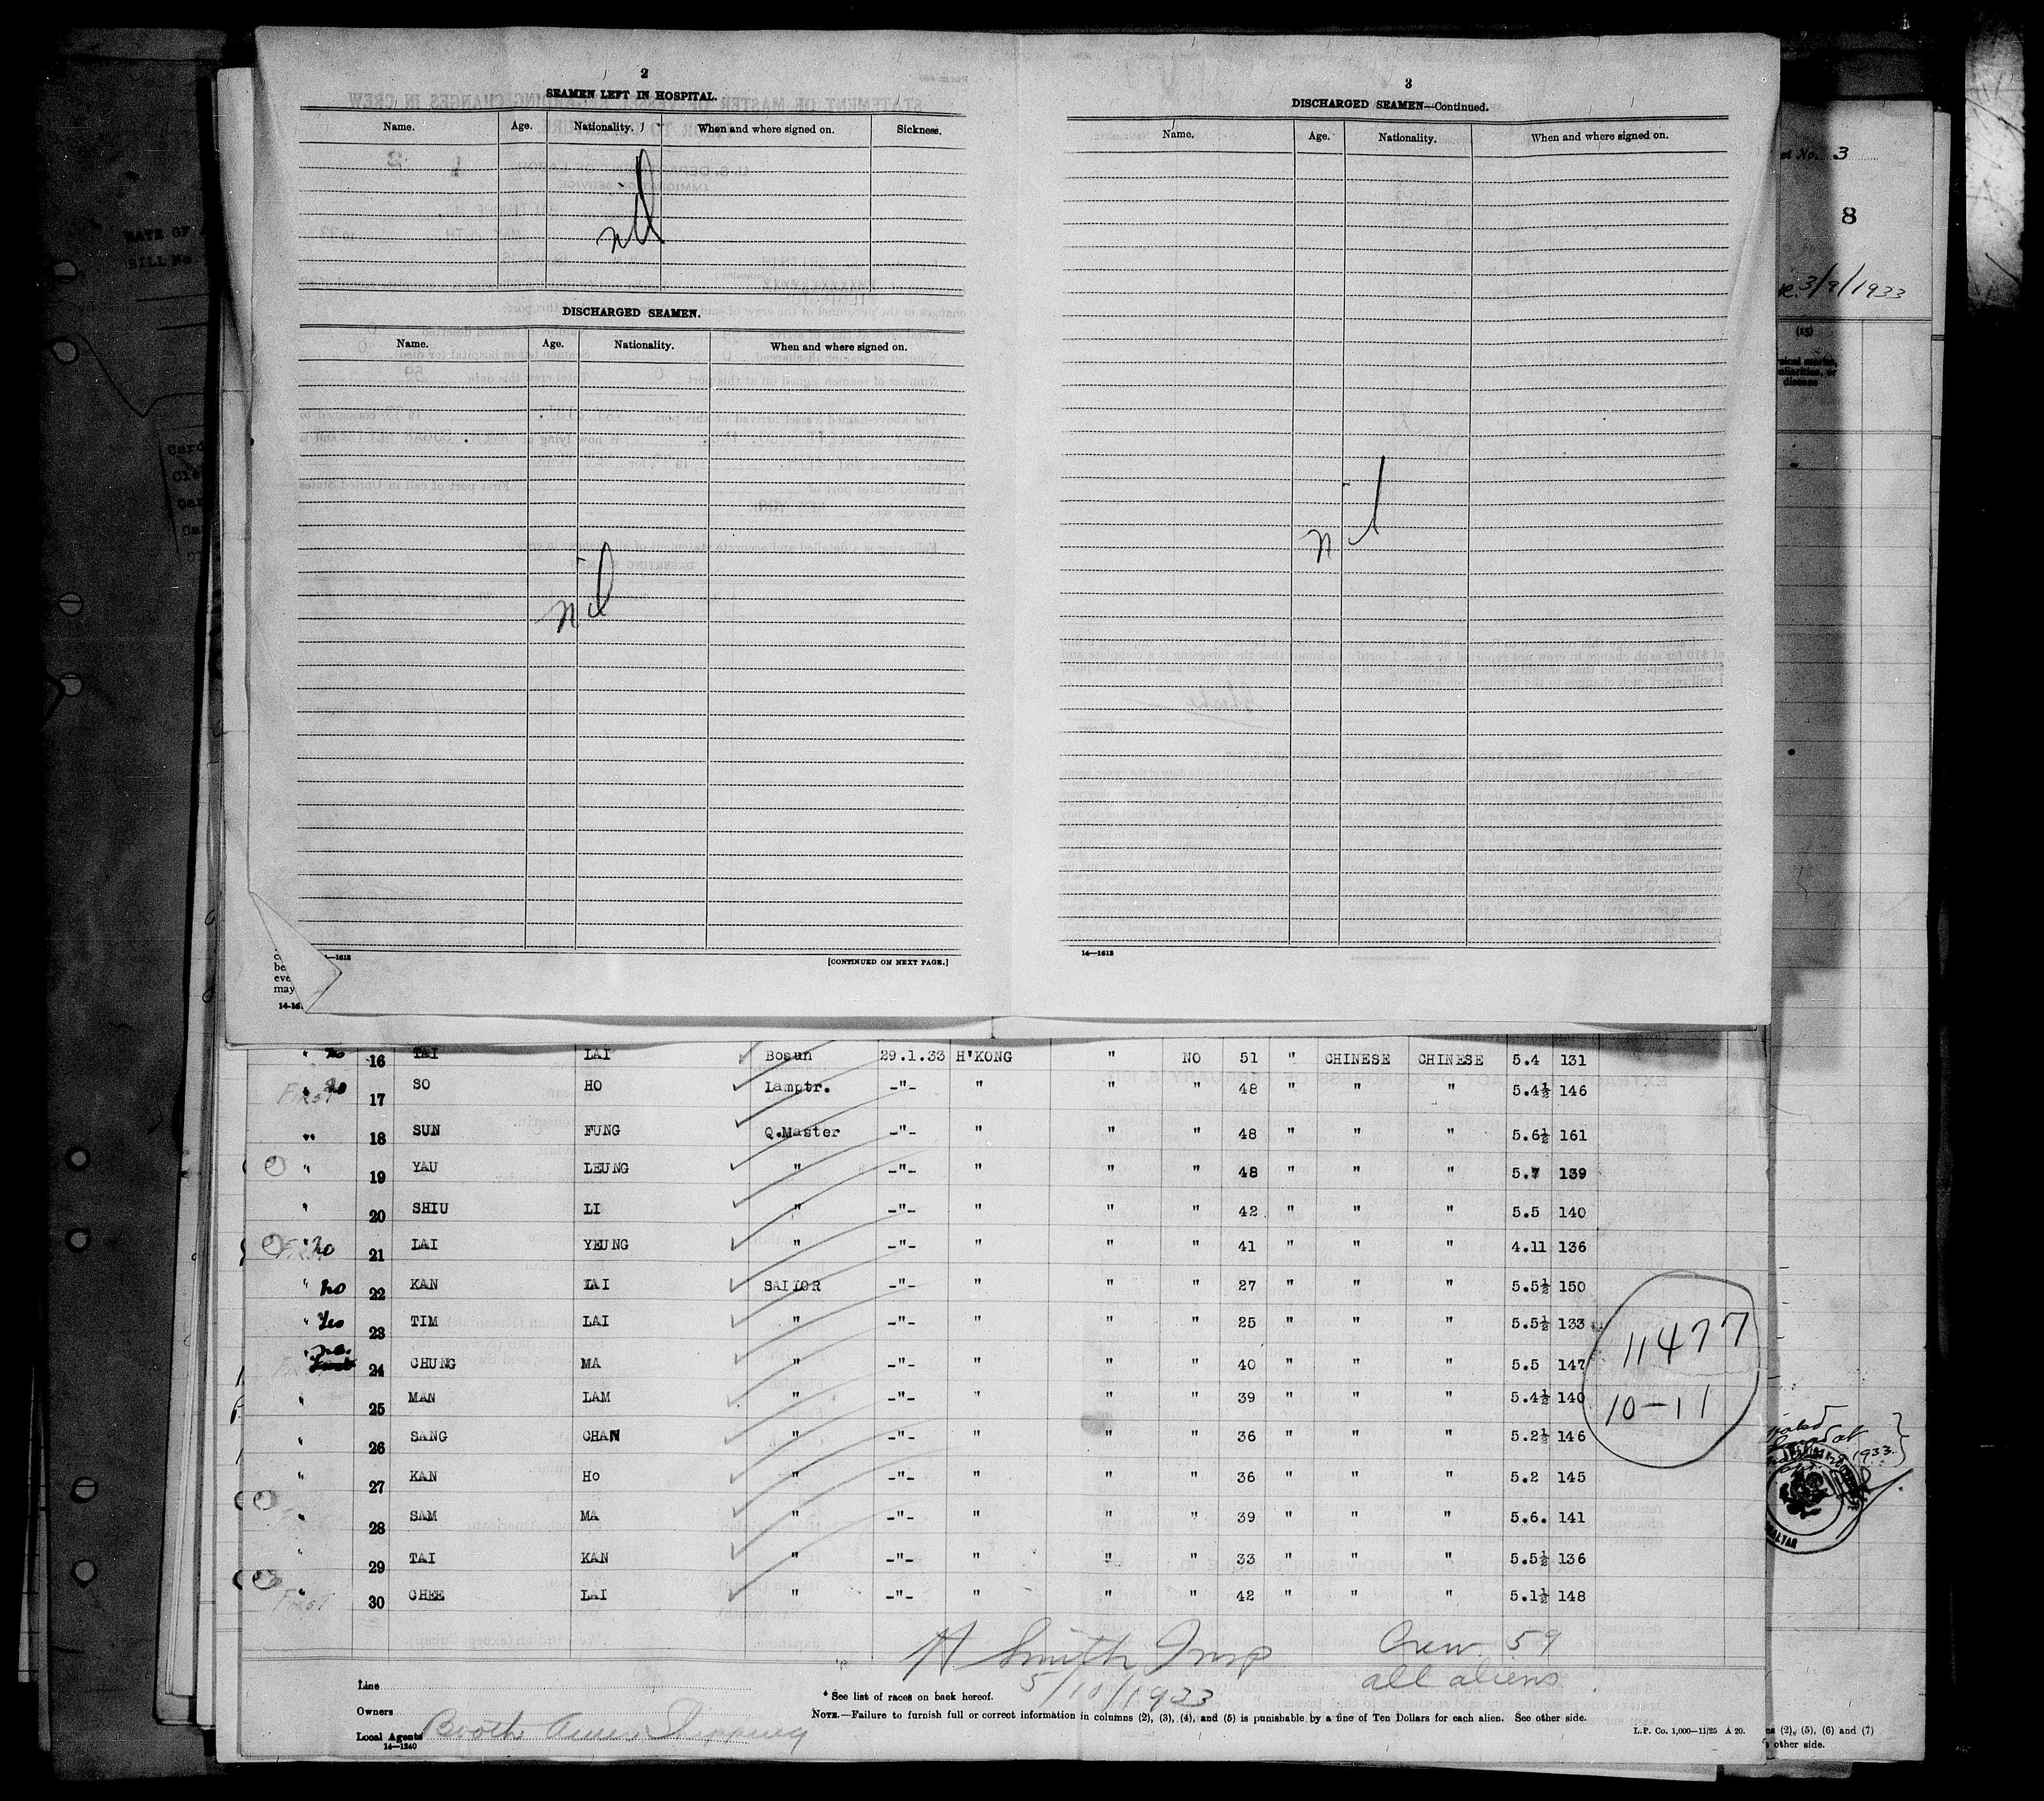 2
SEAMEN LEFT IN HOSPITAL.
Name. Age. Nationality. When and where signed on. Sickness.
nil
DISCHARGED SEAMEN.
Name. Age. Nationality. When and where signed on.
nil
14—1613
[CONTINUED ON NEXT PAGE.]
be
eve
may
3
DISCHARGED SEAMEN—Continued.
Name. Age. Nationality. When and where signed on.
nil
14—1613
No. 3
8
3/9/1933
(15)
disease
DATE OF
BILL No.
" no 16 TAI LAI Bosun 29.1.33 H'KONG " NO 51 " CHINESE CHINESE 5.4 131
First " no 17 SO HO Lamptr. -"- " " " 48 " " " 5.4½ 146
" 18 SUN FUNG Q.Master -"- " " " 48 " " " 5.6½ 161
" 19 YAU LEUNG " -"- " " " 48 " " " 5.7 139
" 20 SHIU LI " -"- " " " 42 " " " 5.5 140
First " no 21 LAI YEUNG " -"- " " " 41 " " " 4.11 136
" no 22 KAN LAI SAILOR -"- " " " 27 " " " 5.5½ 150
" Yes 23 TIM LAI " -"- " " " 25 " " " 5.5½ 133
" no. 24 CHUNG MA " -"- " " " 40 " " " 5.5 147
" 25 MAN LAM " -"- " " " 39 " " " 5.4½ 140
" 26 SANG CHAN " -"- " " " 36 " " " 5.2½ 146
" 27 KAN Ho " -"- " " " 36 " " " 5.2 145
" 28 SAM MA " -"- " " " 39 " " " 5.6. 141
" 29 TAI KAN " -"- " " " 33 " " " 5.5½ 136
First " 30 CHEE LAI " -"- " " " 42 " " " 5.1½ 148
11477
10-11
1933
H Smith Insp
5/10/1933
Crew 59
all aliens
Line
Owners
Local Agents Booth Amer. Shipping
14—1240
* See list of races on back hereof.
NOTE.—Failure to furnish full or correct information in columns (2), (3), (4), and (5) is punishable by a fine of Ten Dollars for each alien. See other side.
L.P. Co. 1,000—11/25 A 20.
(2), (5), (6) and (7)
other side.